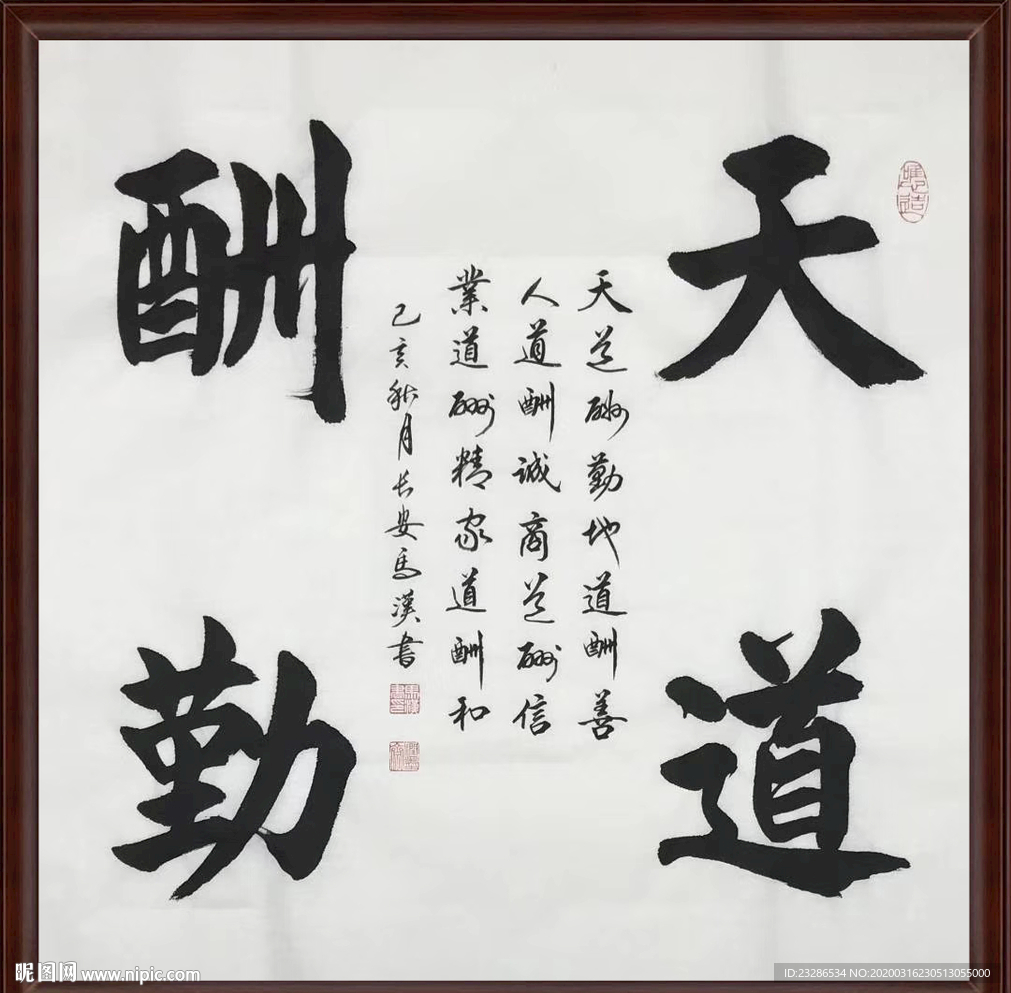 天道
酬勤
天道酬勤地道酬善
人道酬誠商道酬信
業道酬精家道酬和
己亥秋月长安馬漢書
昵图网 www.nipic.com
ID:23286534 NO:20200316230513055000